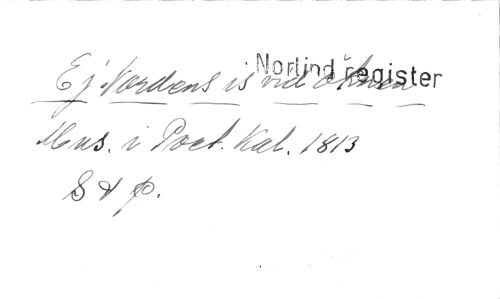 Norlind register
Ej Nordens is vid öknen
Mus. i Poet. Kal. 1813
S & p.